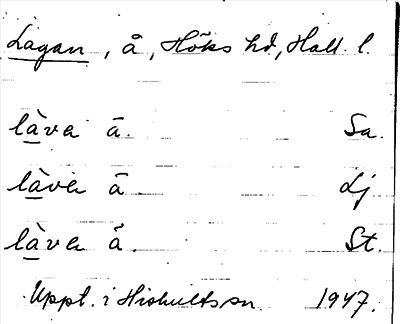 Lagan, å, Höks hd, Hall. l.
làva å. Sa.
làva å. Lj
làva å. St.
Uppt. i Hishults sn 1947.